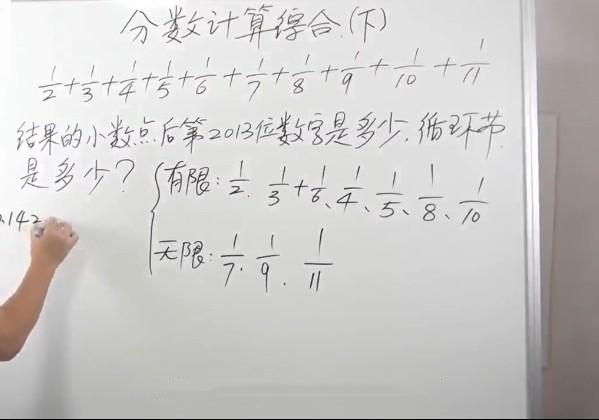 分数计算综合(下)
1/2+1/3+1/4+1/5+1/6+1/7+1/8+1/9+1/10+1/11
结果的小数点后第2013位数字是多少,循环节
是多少? 有限: 1/2、1/3+1/6、1/4、1/5、1/8、1/10
.142
无限: 1/7、1/9、1/11